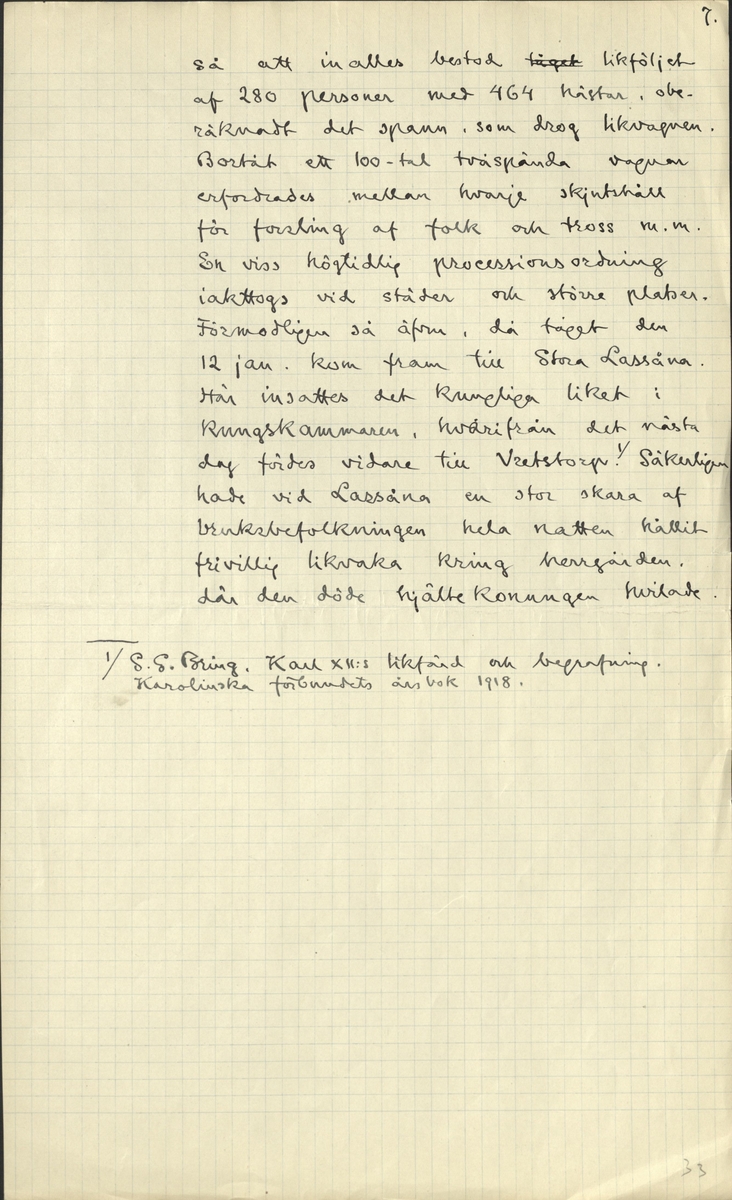 7.
så att inalles bestod tåget likföljet
af 280 personer med 464 hästar, obe-
räknadt det spann, som drog likvagnen.
Bortåt ett 100-tal tvåspända vagnar
erfordrades mellan hvarje skjutshåll
för forsling af folk och tross m.m.
En viss högtidlig processionsordning
iakttogs vid städer och större platser.
Förmodligen så äfven, då tåget den
12 jan. kom fram till Stora Lassåna.
Här insattes det kungliga liket i
Kungskammaren, hvarifrån det nästa
dag fördes vidare till Vretstorp.1/ Säkerligen
hade vid Lassåna en stor skara af
bruksbefolkningen hela natten hållit
frivillig likvaka kring herrgården,
där den döde hjältekonungen hvilade.
1/ S.E. Bring. Karl XII:s likfärd och begrafning.
Karolinska förbundets årsbok 1918.
33